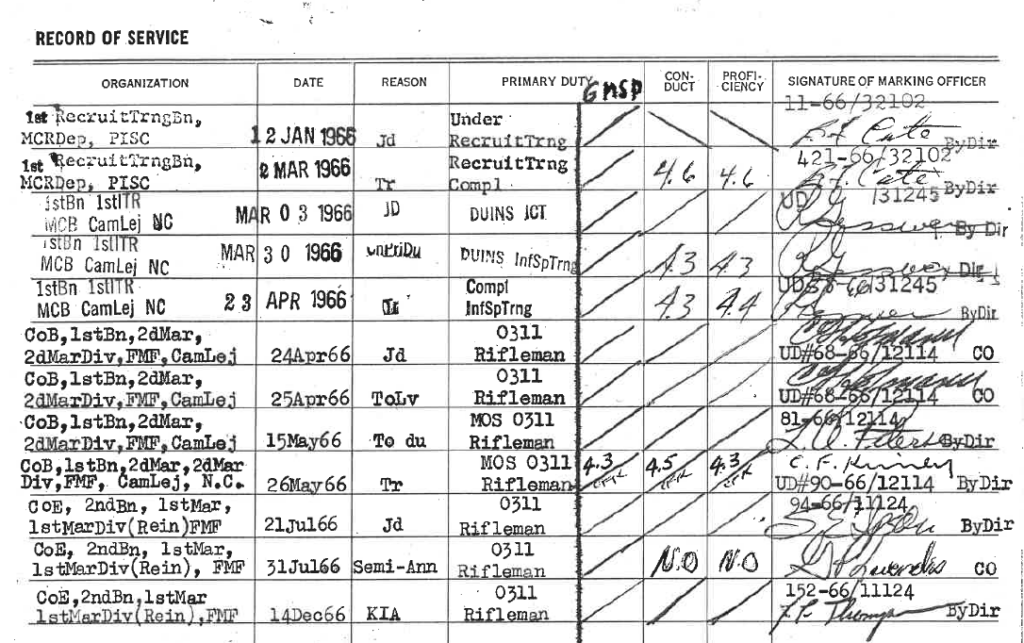 RECORD OF SERVICE
ORGANIZATION DATE REASON PRIMARY DUTY GMSP CON- DUCT PROFI- CIENCY SIGNATURE OF MARKING OFFICER
11-66/32102
1st RecruitTrngBn, Under
MCRDep, PISC 12 JAN 1966 Jd RecruitTrng ByDir
421-66/32102
1st RecruitTrngBn, 2 MAR 1966 RecruitTrng 4.6 4.6
MCRDep, PISC Tr Compl ByDir
1stBn 1stITR MAR 03 1966 JD DUINS ICT UD /31245
MCB CamLej NC By Dir
1stBn 1stITR MAR 30 1966 DUINS InfSpTrng 4.3 4.3
MCB CamLej NC Dir
1stBn 1stITR 23 APR 1966 Tr Compl 4.3 4.4 /31245
MCB CamLej NC InfSpTrng ByDir
CoB,1stBn,2dMar, 0311
2dMarDiv,FMF,CamLej 24Apr66 Jd Rifleman UD#68-66/12114 CO
CoB,1stBn,2dMar, 0311
2dMarDiv,FMF,CamLej 25Apr66 ToLv Rifleman UD#68-66/12114 CO
CoB,1stBn,2dMar, MOS 0311 81-66/12114
2dMarDiv,FMF,CamLej 15May66 To du Rifleman ByDir
CoB,1stBn,2dMar,2dMar MOS 0311 4.3 4.5 4.3
Div,FMF, CamLej, N.C. 26May66 Tr Rifleman UD#90-66/12114 ByDir
CoE, 2ndBn, 1stMar, 0311 94-66/11124
1stMarDiv(Rein)FMF 21Jul66 Jd Rifleman ByDir
CoE, 2ndBn, 1stMar, 0311
1stMarDiv(Rein), FMF 31Jul66 Semi-Ann Rifleman N.O N.O CO
CoE,2ndBn,1stMar 0311 152-66/11124
1stMarDiv(Rein),FMF 14Dec66 KIA Rifleman ByDir